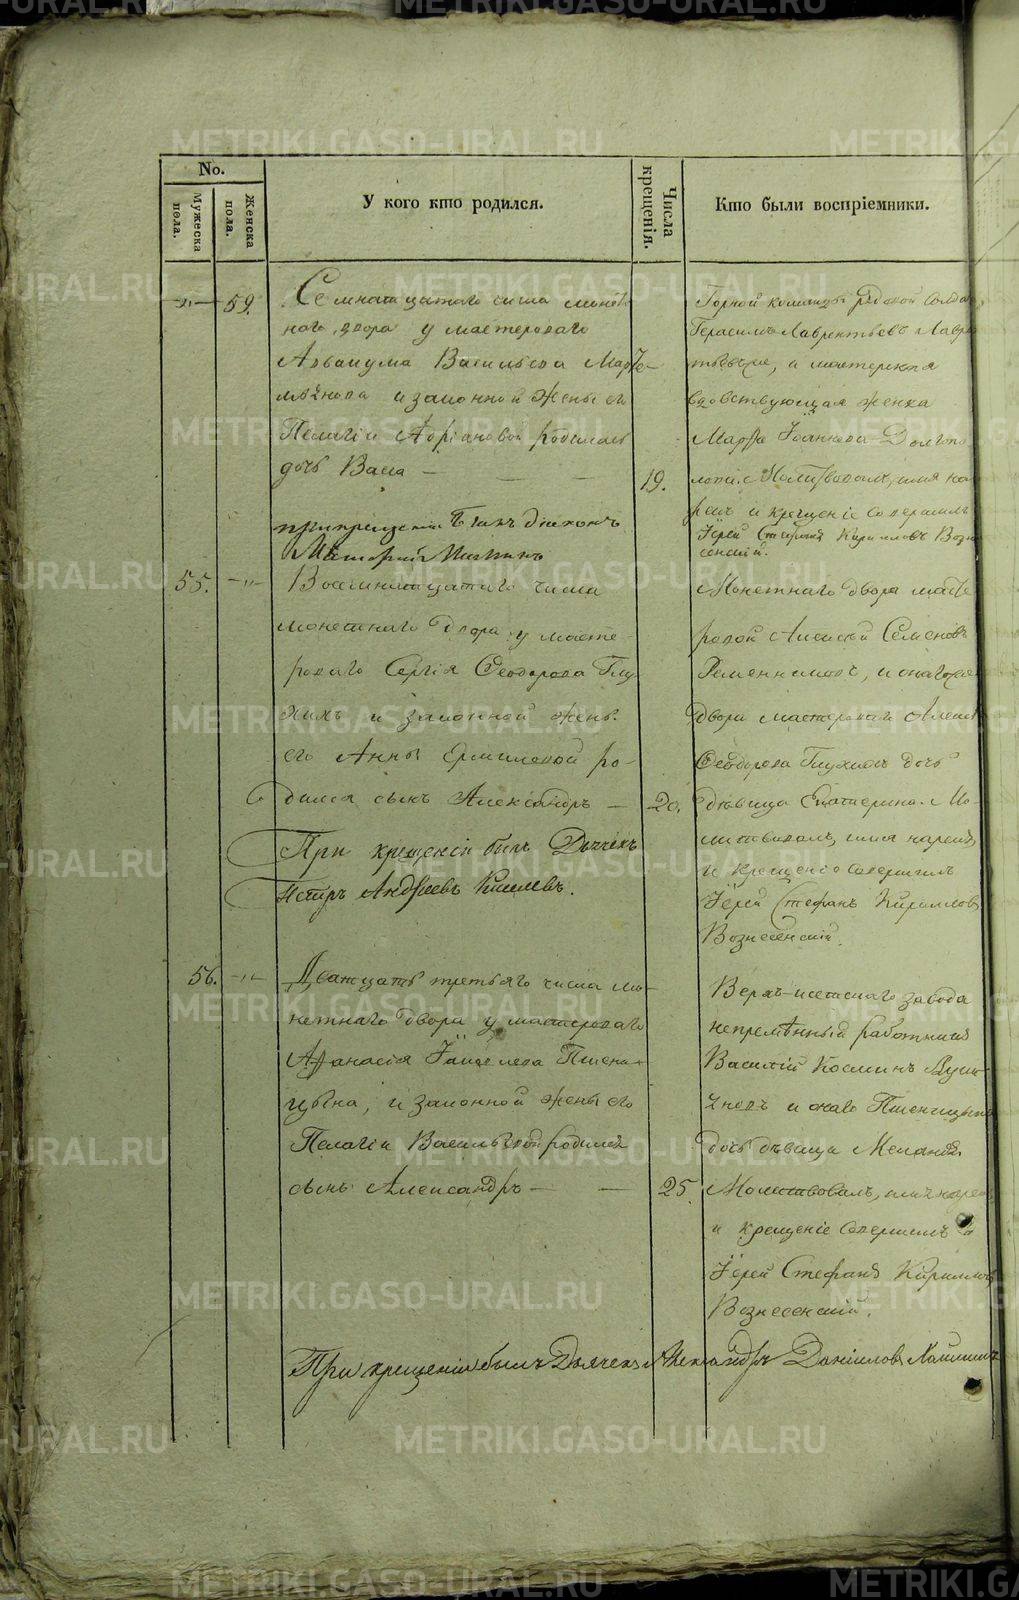 No.
Мужеска пола.
Женска пола.
У кого кто родился.
Числа крещенія.
Кто были воспріемники.
59.
Семнатцатаго числа монет
наго двора у мастероваго
Аввакума Васильева
и законной жены его
Пелагіи Адріановой родилась
дочь Васса
при крещеніи былъ діаконъ
19.
Горной команды рядовой солда
Герасимъ Лаврентьевъ Лавре
и мастерская
вдовствующая женка
Марфа Іоаннова
Молитвовалъ, имя на
рекъ и крещеніе совершилъ
Іерей Стефанъ Кирилловъ Возне
сенскій.
55.
Восемнатцатаго числа
монетнаго двора у масте
роваго Сергія Ѳеодорова Глу
хихъ и законной жены
его Анны Ермиловой ро-
дился сынъ Александръ
При крещеніи былъ Дьячекъ
Петръ Андреевъ Киселевъ.
20.
Монетнаго двора масте
ровой Алексѣй Семеновъ
и онаго же
двора мастероваго Алексѣ
Ѳеодорова Глухихъ дочь
дѣвица Екатерина. Мо
литвовалъ, имя нарекъ,
и крещеніе совершилъ
Іерей Стефанъ Кирилловъ
Вознесенскій.
56.
Дватцать третьяго числа мо
нетнаго двора у мастероваго
Аѳанасія Пшени
цына, и законной жены его
Пелагіи Васильевой родился
сынъ Александръ
25.
Верхъ-исетскаго завода
непремѣнный работникъ
Василій Косминъ
и онаго Пшеницына
дочь дѣвица Меланія.
Молитвовалъ, имя нарекъ
и крещеніе совершилъ
Іерей Стефанъ Кирилловъ
Вознесенскій.
При крещеніи былъ Дьячекъ Александръ Даніиловъ
METRIKI.GASO-URAL.RU